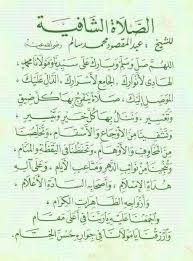 الصلاة الشافية
للشيخ عبد المقصود محمد سالم رضي الله عنه
اللهم صل وسلم وبارك على سيدنا ومولانا محمد
الهادي لأنوارك، الجامع لأسرارك، الدال عليك،
الموصل إليك، صلاة ينفرج بها كل ضيق
وتعسير، وننال بها كل خير وتيسير،
وتشفينا من الأوجاع والأسقام، وتخلصنا
من المخاوف والأوهام، وتحفظنا في اليقظة والمنام،
وتنجينا من نوائب الدهر ومتاعب الأيام، وعلى آله
هداة الإسلام، وأصحابه السادة الأعلام،
وأزواجه الطاهرات الكرام،
واجمعنا عليه يا ربنا في أعلى مقام
وارزقنا يا مولانا في جواره حسن الختام.